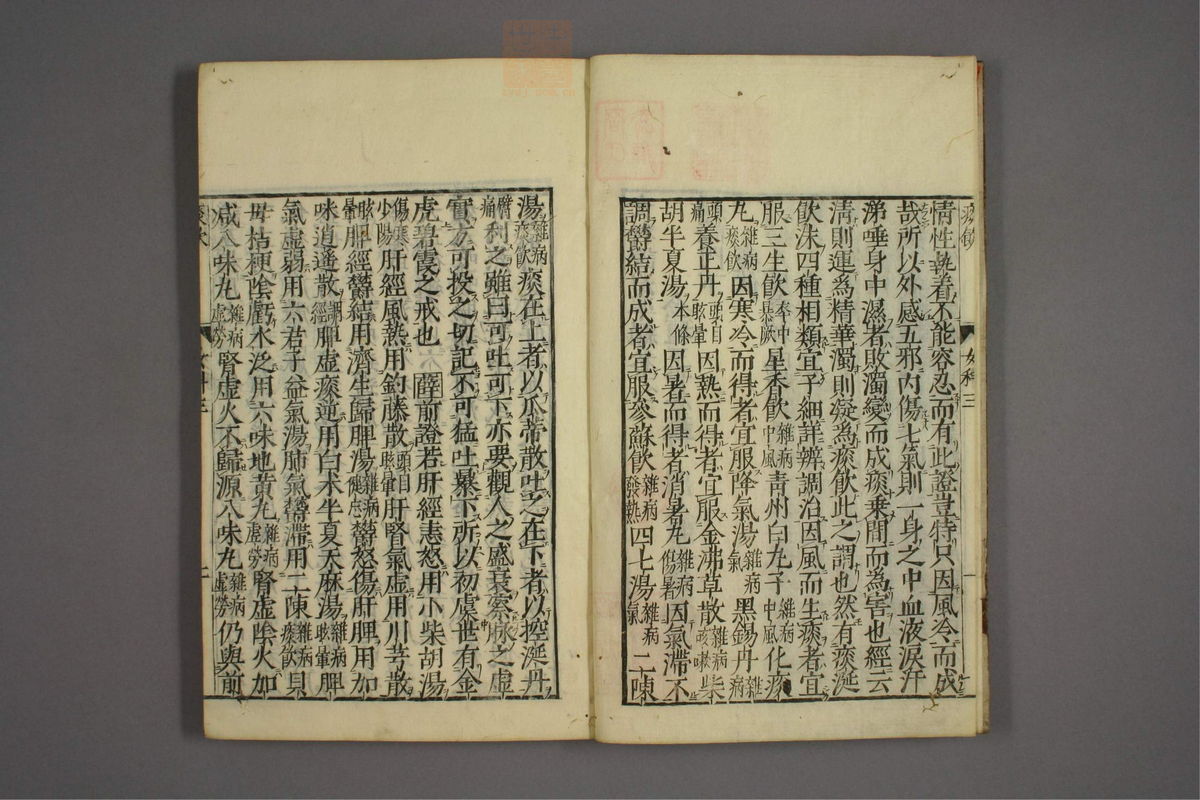 情性執着不能容忍而有此證豈特只因風冷而成
哉所以外感五邪内傷七氣則一身之中血液淚汗
涕唾身中濕者敗濁變而成痰乗間而為害也經云
清則運為精華濁則凝為痰飲此之謂也然有痰涎
飲沫四種相類宜子細詳辨調治因風而生痰者宜
服三生飲卒中暴厥星香飲雜病中風青州白丸子雜病中風化痰
丸雜病痰飲因寒冷而得者宜服降氣湯雜病氣黑錫丹雜病
頭痛養正丹頭目眩暈因熱而得者宜服金沸草散雜病咳嗽柴
胡半夏湯本條因暑而得者消暑丸雜病傷暑因氣滯不
調鬱結而成者宜服參蘇飲雜病發熱四七湯雜病氣二陳
湯雜病痰飲痰在上者以瓜蒂散吐之在下者以控涎丹
臂痛利之雖曰可吐可下亦要觀人之盛衰察脉之虚
實方可投之切記不可猛吐暴下所以初虞世有金
虎碧霞之戒也 薛前證若肝經恚怒用小柴胡湯
傷寒少陽肝經風熱用鈎藤散頭目眩暈肝腎氣虚用川芎散
眩暈脾經鬱結用濟生歸脾湯雜病健忘鬱怒傷肝脾用加
味逍遥散調經脾虚痰逆用白术半夏天麻湯雜病眩暈脾
氣虚弱用六君子益氣湯肺氣鬱滯用二陳雜病痰飲貝
母桔梗陰虧水泛用六味地黄丸雜病虚勞腎虚陰火加
减八味丸雜病虚勞腎虚火不歸源八味丸雜病虚勞仍與前